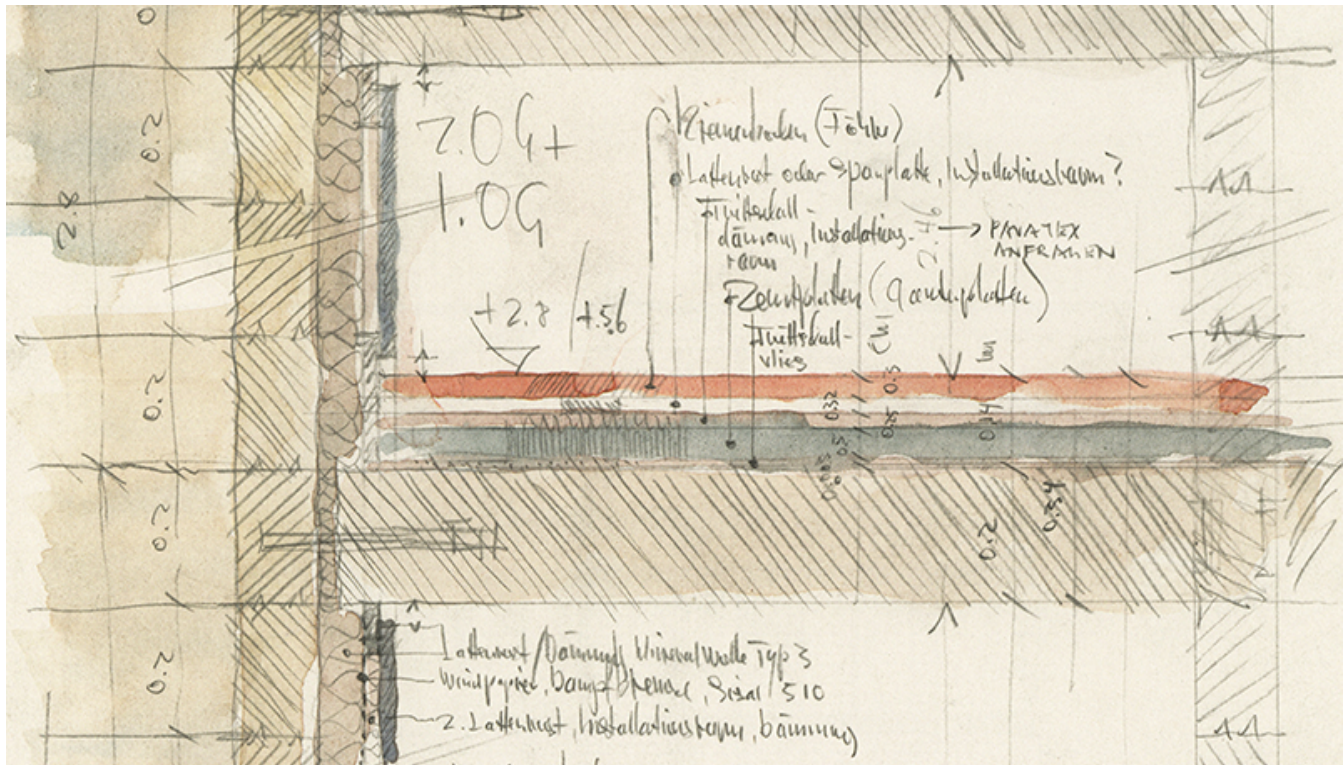 2.OG+
1.OG
+2.8 / +5.6
Riemenboden (Föhre)
Lattenrost oder Spanplatte, Installationsraum?
Trittschall-
dämmung, Installations-
raum
→ PAVATEX
ANFRAGEN
Zementplatten (Gartenplatten)
Trittschall-
vlies
0.2
2.8
0.2
0.2
0.2
2.46
0.3
0.32
0.25
0.5
0.003
0.14
0.2
0.34
Lattenrost / Dämmung Mineralwolle Typ 3
Windpapier, Dampfbremse, Sisal 510
2. Lattenrost, Installationsraum, Dämmung